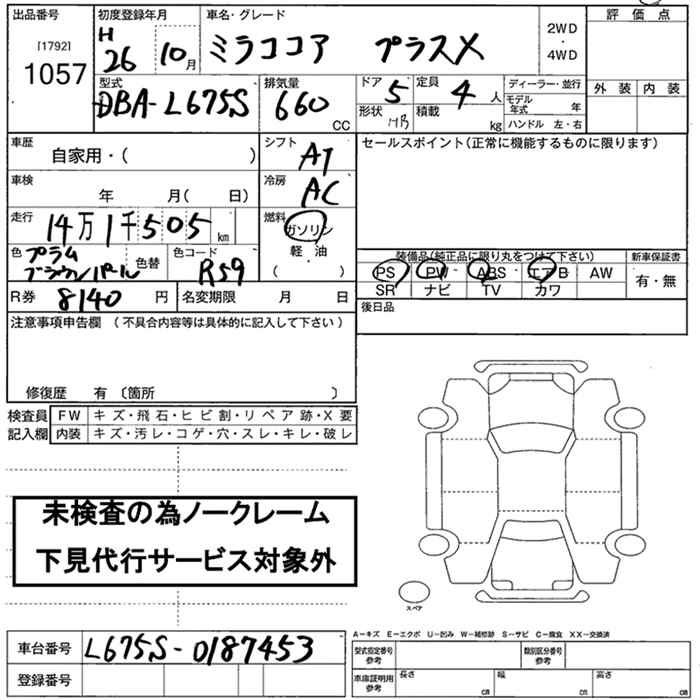 出品番号
[1792]
1057
初度登録年月
H
26 10月
車名・グレード
ミラココア プラスX
2WD
・
4WD
評価点
外装 内装
型式
DBA-L675S
排気量
660
CC
ドア
5
形状
HB
定員
4 人
積載
kg
ディーラー・並行
モデル年式 年
ハンドル 左・右
車歴
自家用・( )
車検
年 月( 日)
走行
14万1千505 km
色
プラム
ブラウンパール
色替
色コード
R59
シフト
AT
冷房
AC
燃料
ガソリン
軽・油
( )
セールスポイント(正常に機能するものに限ります)
装備品(純正品に限り丸をつけて下さい)
PS PW ABS エアB AW
SR ナビ TV カワ
新車保証書
有・無
R券 8140 円
名変期限 月 日
後日品
注意事項申告欄 (不具合内容等は具体的に記入して下さい)
修復歴 有 〔箇所 〕
検査員
記入欄
FW キズ・飛石・ヒビ割・リペア跡・X要
内装 キズ・汚レ・コゲ・穴・スレ・キレ・破レ
未検査の為ノークレーム
下見代行サービス対象外
スペア
A-キズ E-エクボ U-凹み W-補修跡 S-サビ C-腐食 XX-交換済
車台番号 L675S-0187453
登録番号
型式指定番号
参考
類別区分番号
参考
車庫証明用
参考
長さ cm
幅 cm
高さ cm